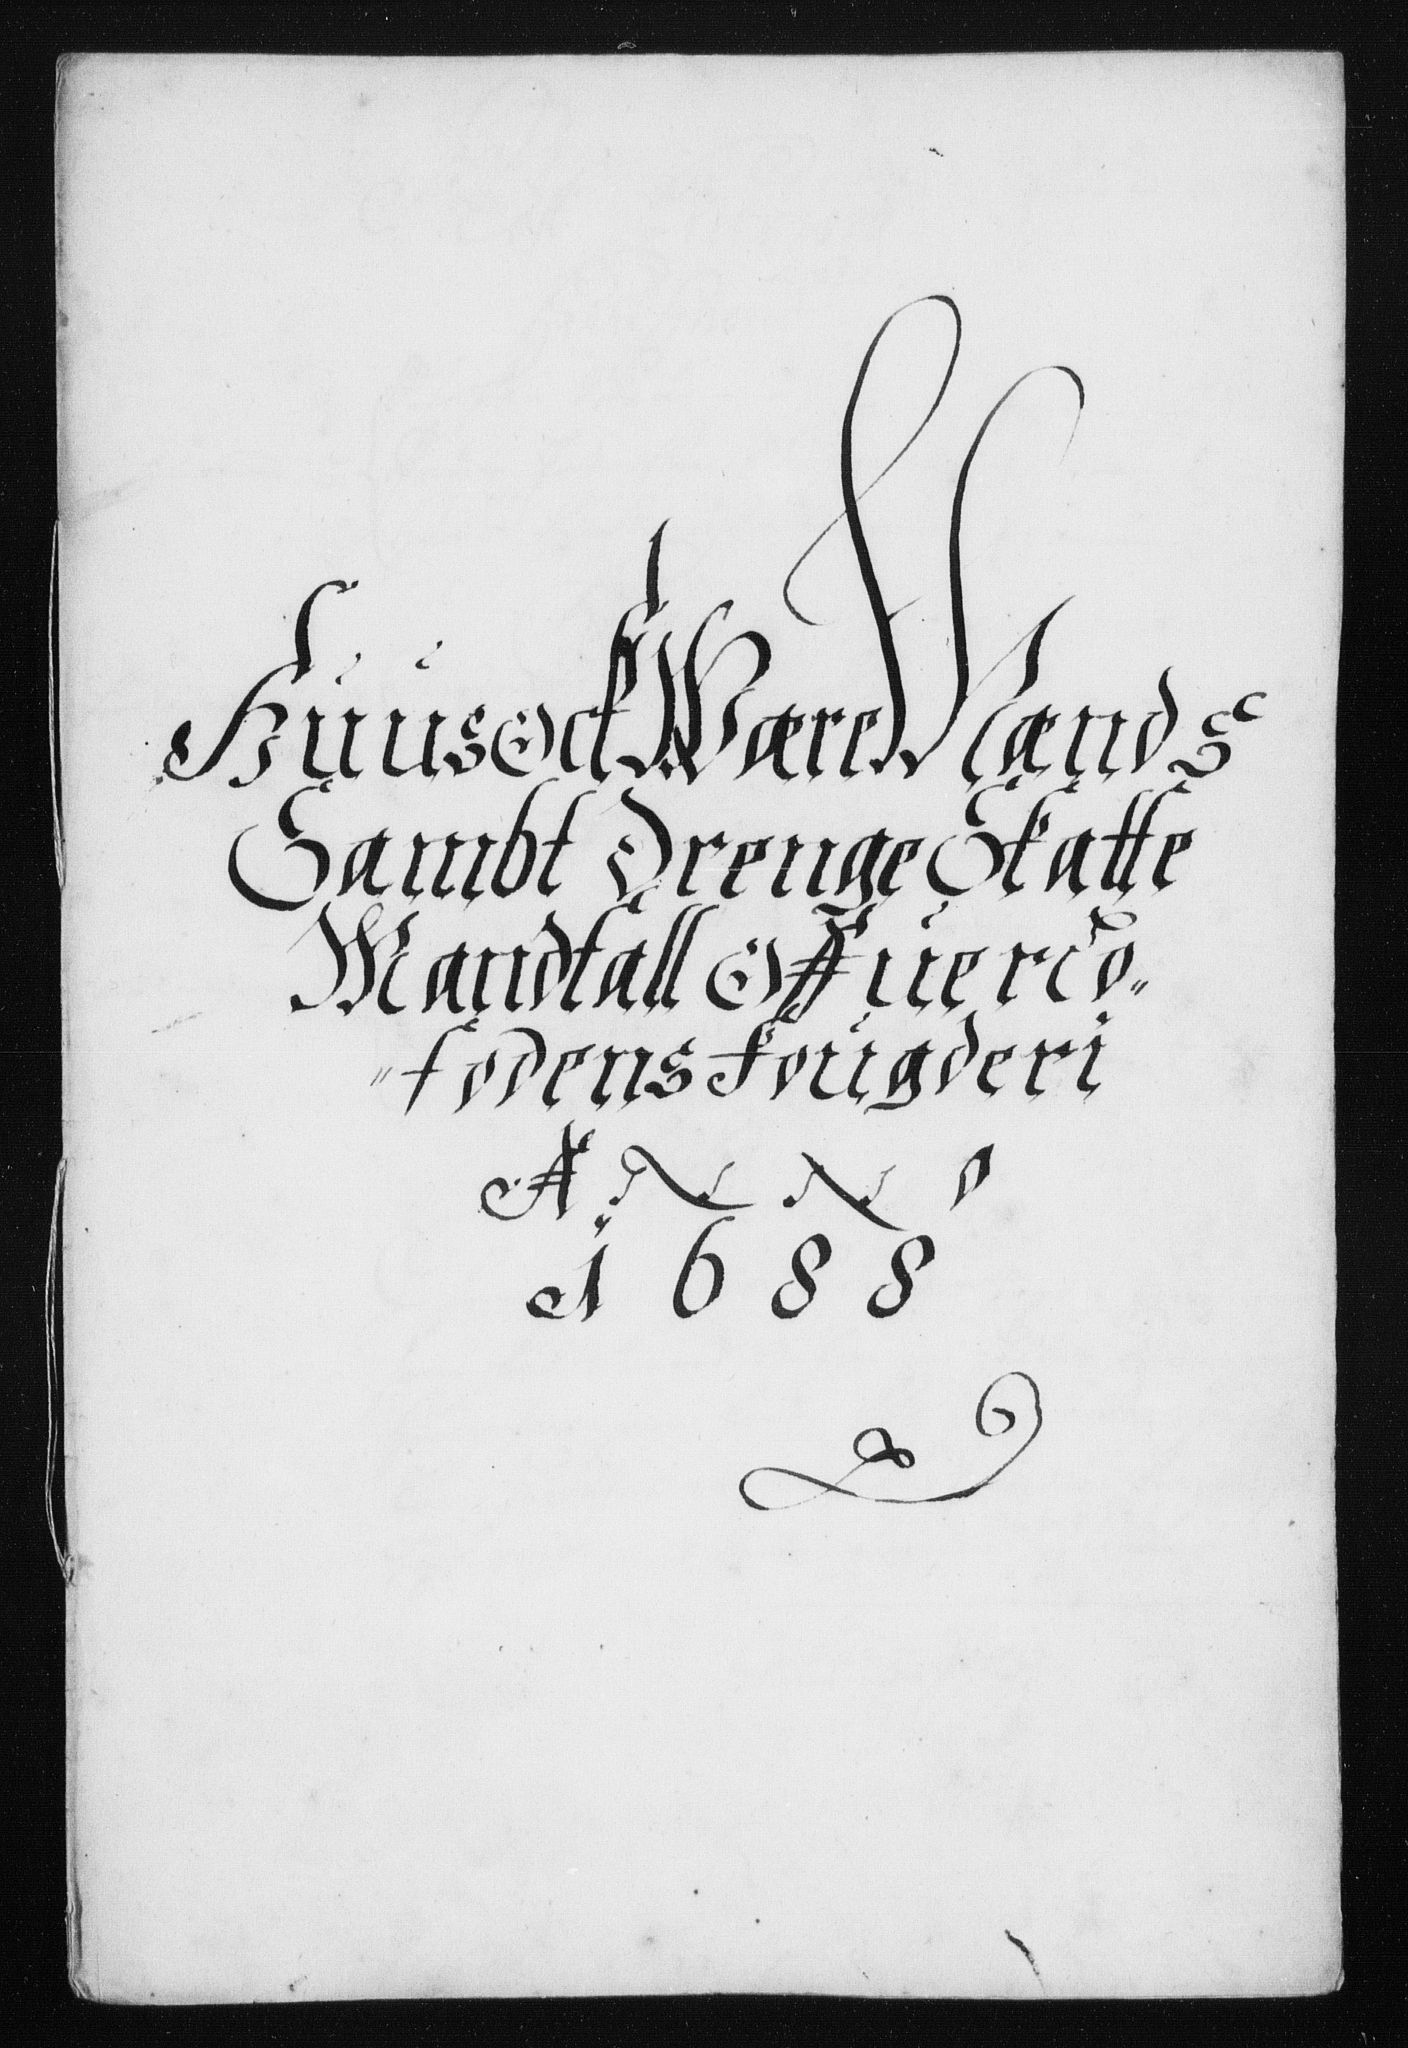 Huus Och Være Mænds
Sambt Drenge Skatte
Mandtall Offuer Co-
todens Fougderi
ANNO
1688